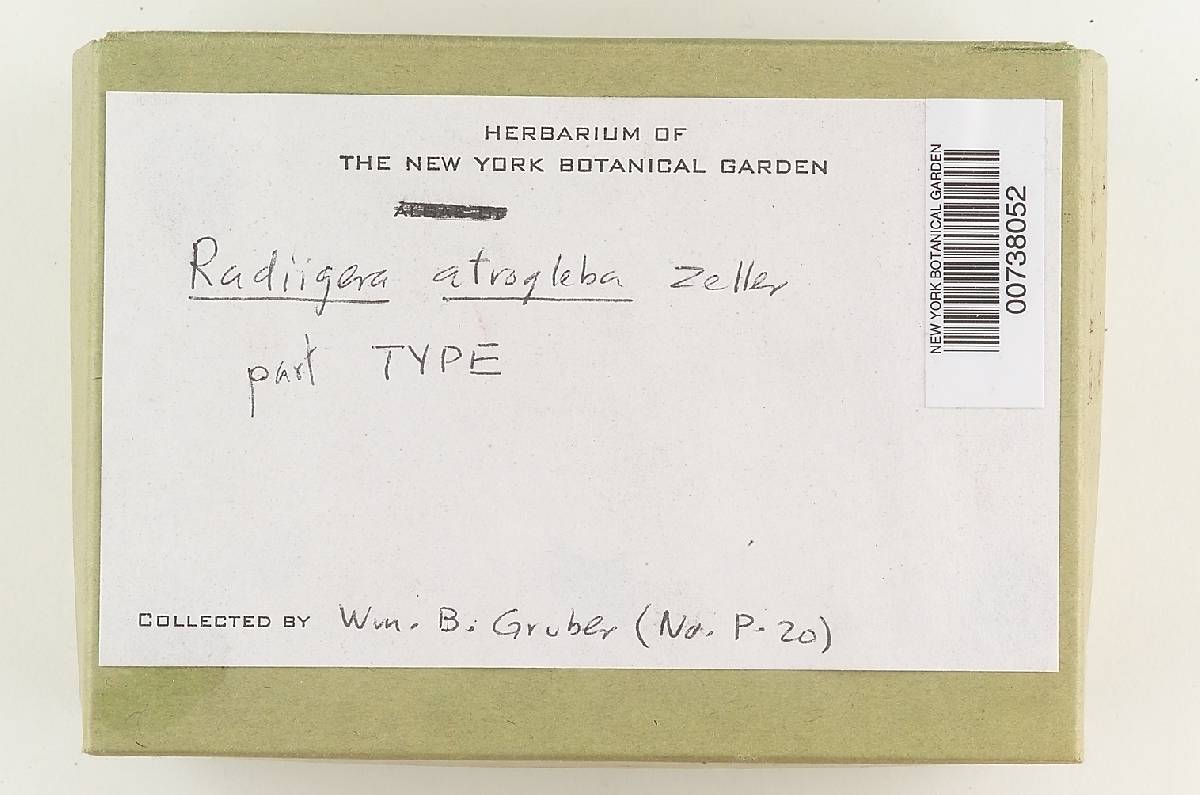 HERBARIUM OF
THE NEW YORK BOTANICAL GARDEN
Radiigera atrogleba Zeller
part TYPE
COLLECTED BY Wm. B. Gruber (No. P-20)
NEW YORK BOTANICAL GARDEN
00738052